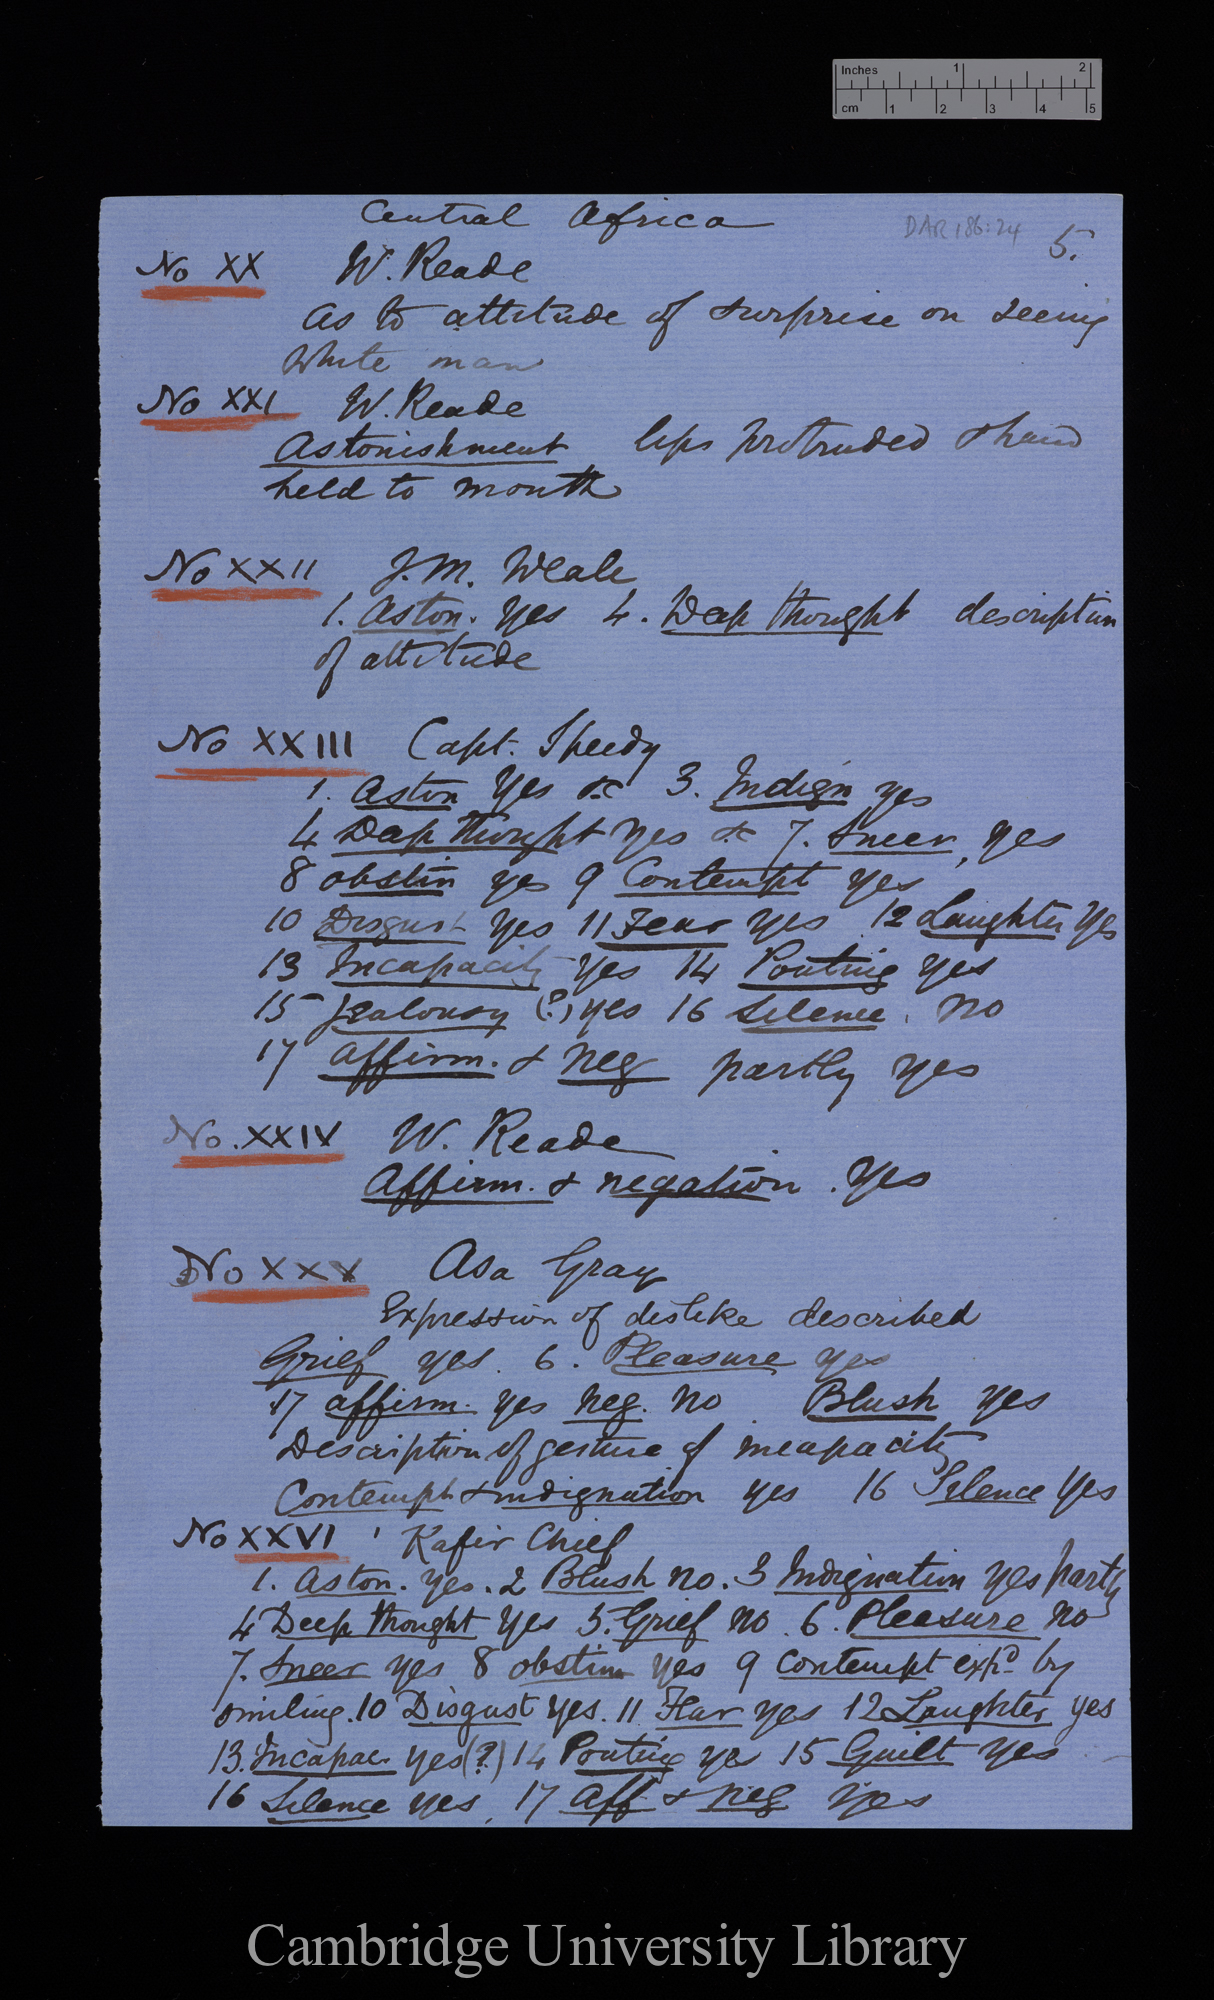 Inches 1 2
cm 1 2 3 4 5
Central Africa
DAR 186:24
5.
No XX W. Reade
As to attitude of surprise on seeing
White man
No XXI W. Reade
Astonishment lips protruded & hand
held to mouth
No XXII J. M. Weale
1. Aston. Yes 4. Deep thought description
of attitude
No XXIII Capt. Speedy
1. Aston Yes &c 3. Indign yes
4 Deep thought Yes &c 7. Sneer, yes
8 obstin yes 9 Contempt yes
10 Disgust Yes 11 Fear Yes 12 Laughter Yes
13 Incapacity Yes 14 Pouting Yes
15 Jealousy (?) yes 16 Silence. No
17 Affirm. & Neg partly yes
No. XXIV W. Reade
Affirm. & negation. Yes
No XXV Asa Gray
Expression of dislike described
Grief yes. 6. Pleasure yes
17 affirm. yes Neg. No Blush yes
Description of gesture of incapacity
Contempt & indignation yes 16 Silence Yes
No XXVI Kafir Chief
1. Aston. Yes. 2 Blush no. 3 Indignation Yes partly
4 Deep thought Yes 5. Grief no. 6. Pleasure No
7. Sneer yes 8 obstin yes 9 Contempt expd by
smiling. 10 Disgust Yes. 11 Fear yes 12 Laughter yes
13. Incapac. Yes (?) 14 Pouting yes 15 Guilt Yes
16 Silence yes, 17 Aff & Neg Yes
Cambridge University Library